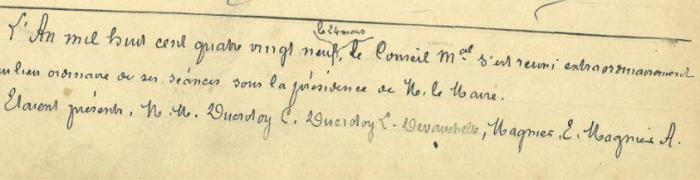 le 24 mars
L'An mil huit cent quatre vingt neuf, le Conseil Mcal s'est reuni extraordinairement
au lieu ordinaire de ses séances sous la présidence de M. le Maire.
Etaient présents, M. M. Ducrotoy C. Ducrotoy L. Devauchelle, Magnier, E. Magnier A.